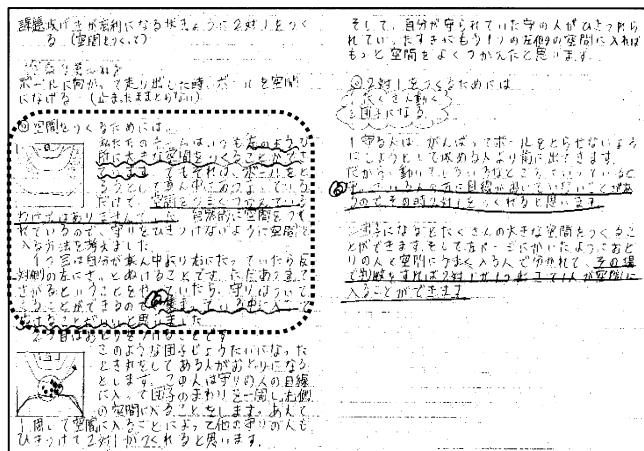 課題 攻げきが有利になる状きょうに2対1をつく
る (空間をつくって)
ボールに向かって走り出した時、ボールを空間
になげる (止まったままとらない)
◎空間をつくるためには
私たちのチームはいつも左のような
所に大きな空間をつくることができ
ています。でもそれは、ボールをと
ろうとして真ん中にあつまっている
だけで、空間をうまくつかんでいる
わけではありませんでした。自然的に空間をつく
れているので、守りをひきつけないように空間に
入る方法を考えました。
1つ目は自分が真ん中より右にたっていたら反
対側の左にさっとぬけることです。ただあつまって
さがるということをやっていたら、守りはついて
くることができるので、集まっている中に入って
ぬけることがいいと思いました。
2つ目はおとりをつけることです。
このような団子じょうたいになった
ときそれをしてある人がおとりになる
とします。この人は守りの人の目線
に入って団子のまわりを一周し、右側
の空間に入ることをします。あえて
1周して空間に入ることによって他の守りの人も
ひきつけて2対1がつくれると思います。
そして、自分が守られていた守の人がひきつけら
れていたすきにもう1つの左側の空間に入れば
もっと空間をよくつかえたと思います。
◎2対1をつくるためには
1 たくさん動く
2 団子になる
1 守る人は、がんばってボールをとらせないよう
にしようとして攻める人より前に出てきます。
だから、動いて
守っている人の方に目線が向いていないことがあ
るので、その時2対1をつくれると思います。
2 団子になるとたくさんの大きな空間をつくるこ
とができます。そして左ページにかいたようにおと
りの人と空間にうまく入る人で分かれて、その場
で判断をすれば2対1が
入ることができます。